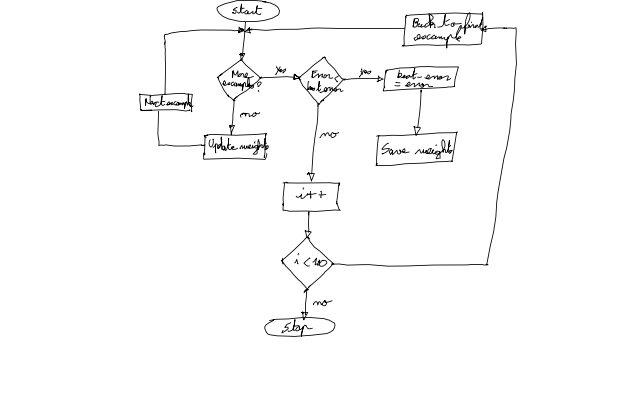 start
Back to first
example
More
examples?
yes
Error <
best error
yes
best-error
= error
Next example
no
Update weights
no
Save weights
i++
i < 10
no
stop